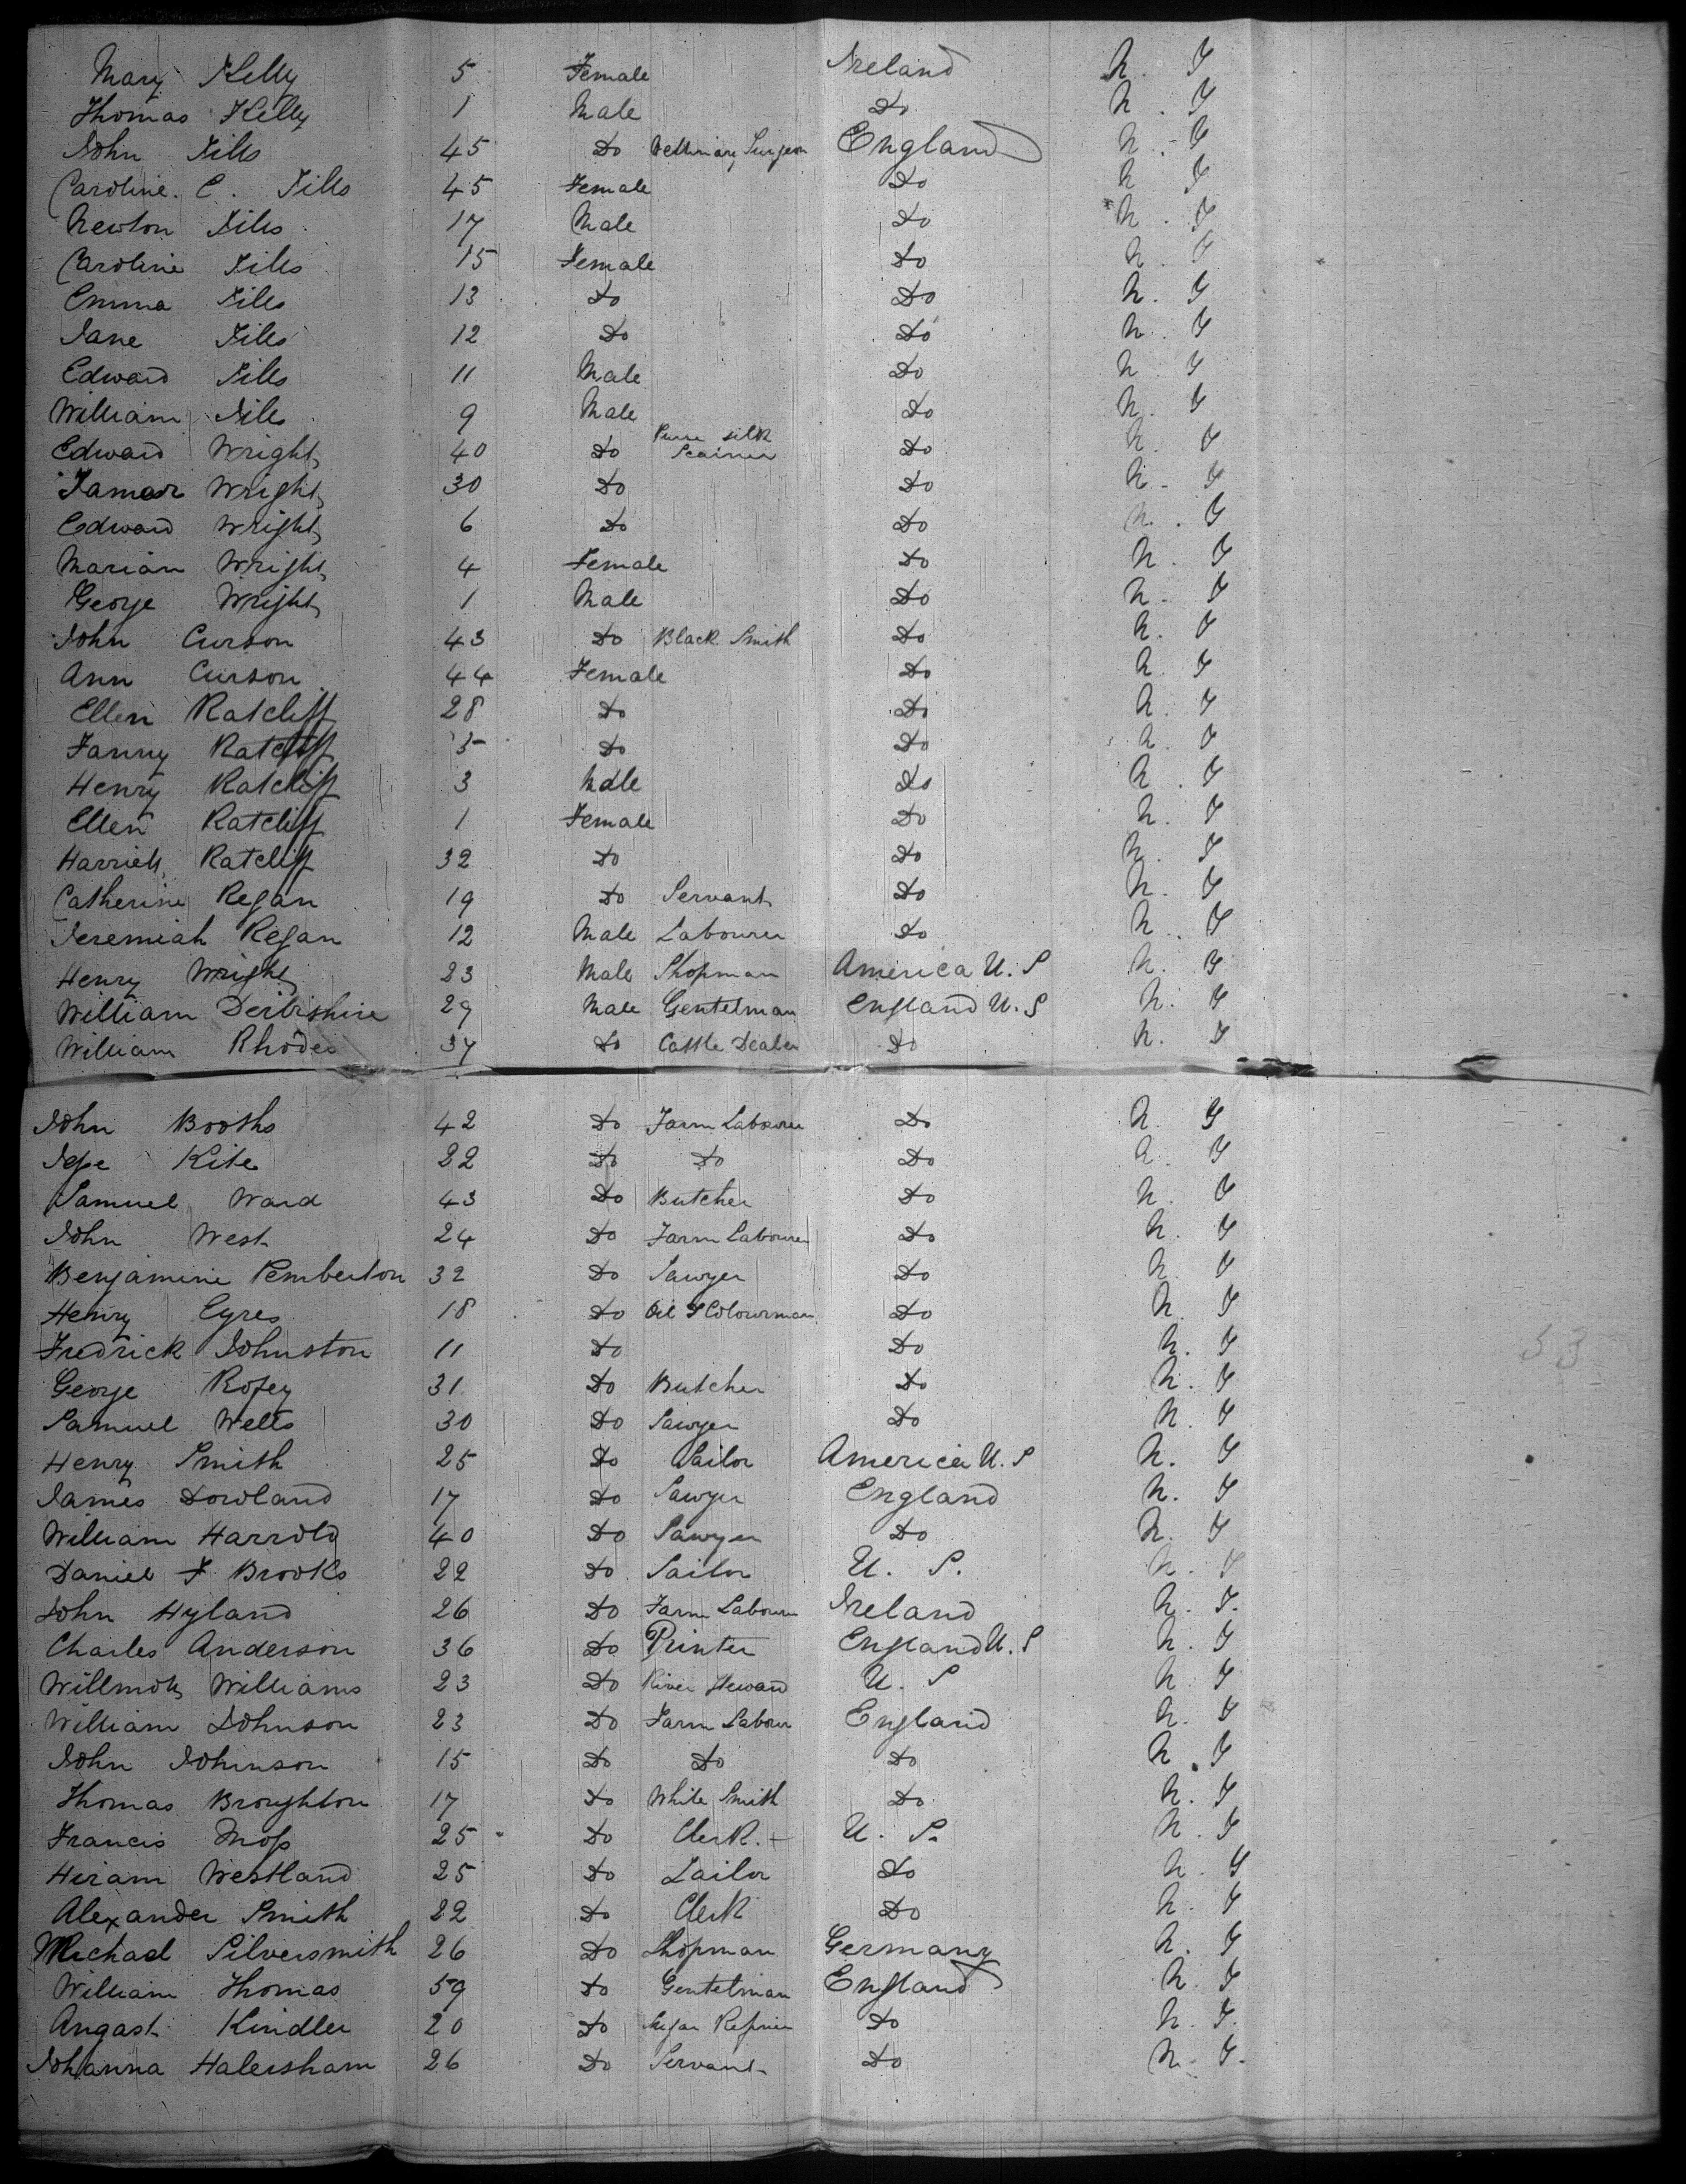 Mary Kelly 5 Female Ireland N. Y
Thomas Kelly 1 Male Do N. Y
John Tills 45 Do Vettinary Surgeon England N. Y
Caroline. E. Tills 45 Female Do N Y
Newton Tills 17 Male Do N. Y
Caroline Tills 15 Female Do N. Y
Emma Tills 13 Do Do N. Y
Jane Tills 12 Do Do N. Y
Edward Tills 11 Male Do N. Y
William Tills 9 Male Do N. Y
Edward Wright 40 Do Silk Do N. Y
Tamar Wright 30 Do Do N. Y
Edward Wright 6 Do Do N. Y
Marian Wright 4 Female Do N. Y
George Wright 1 Male Do N. Y
John Curson 43 Do Black Smith Do N. Y
Ann Curson 44 Female Do N. Y
Ellen Ratcliff 28 Do Do N. Y
Fanny Ratcliff 5 Do Do N. Y
Henry Ratcliff 3 Male Do N. Y
Ellen Ratcliff 1 Female Do N. Y
Harriett Ratcliff 32 Do Do N. Y
Catherine Regan 19 Do Servant Do N. Y
Jeremiah Regan 12 Male Labourer Do N. Y
Henry Wright 23 Male Shopman America U. S N. Y
William Derbishire 29 Male Gentelman England U. S N. Y
William Rhodes 37 Do Cattle Dealer Do N. Y
John Booths 42 Do Farm Labourer Do N. Y
Jesse Kite 22 Do Do Do N. Y
Samuel Ward 43 Do Butcher Do N. Y
John West 24 Do Farm Labourer Do N. Y
Benjamine Pemberton 32 Do Sawyer Do N. Y
Henry Eyres 18 Do Oil & Colourman Do N. Y
Fredrick Johnston 11 Do Do N. Y
George Rofey 31 Do Butcher Do N. Y
Samuel Wells 30 Do Sawyer Do N. Y
Henry Smith 25 Do Sailor America U. S N. Y
James Dowland 17 Do Sawyer England N. Y
William Harrold 40 Do Sawyer Do N. Y
Daniel F Brooks 22 Do Sailor U. S. N. Y
John Hyland 26 Do Farm Labourer Ireland N. Y.
Charles Anderson 36 Do Printer England U. S N. Y
Willmott Williams 23 Do Steward U. S N. Y
William Johnson 23 Do Farm Labour England N. Y
John Johnson 15 Do Do Do N. Y
Thomas Broughton 17 Do White Smith Do N. Y
Francis Moss 25 Do Clerk. U. S. N. Y
Hiram Westland 25 Do Sailor Do N. Y
Alexander Smith 22 Do Clerk Do N. Y
Michael Silversmith 26 Do Shopman Germany N. Y
William Thomas 59 Do Gentelman England N. Y
Angast Kindler 20 Do Sugar Refiner Do N. Y.
Johanna Halersham 26 Do Servant Do N. Y.
53